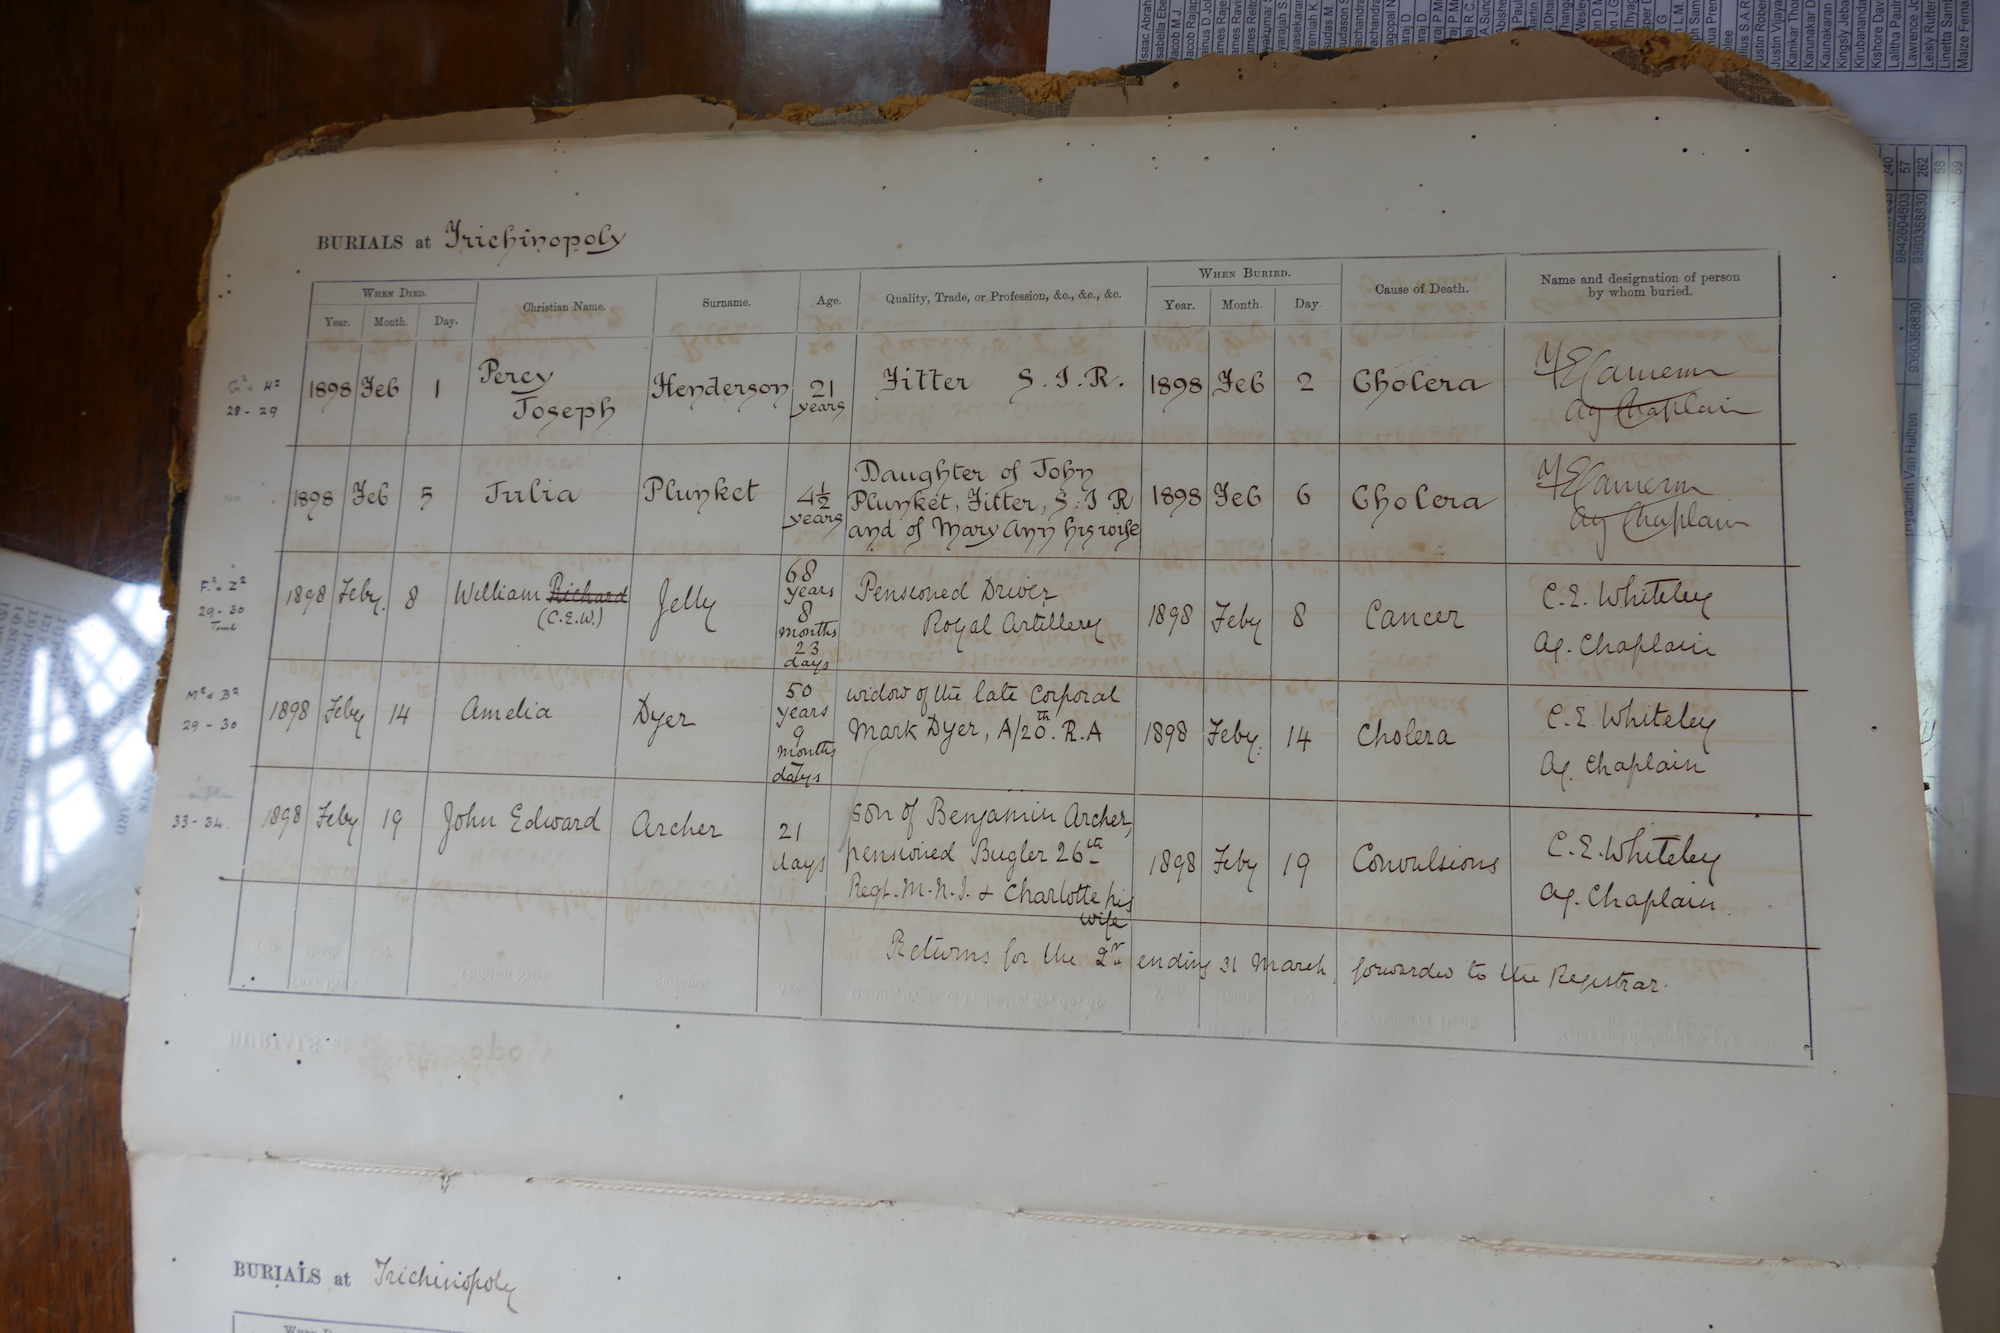 BURIALS at Trichinopoly
WHEN DIED.
Year. Month. Day.
Christian Name.
Surname.
Age.
Quality, Trade, or Profession, &c., &c., &c.
WHEN BURIED.
Year. Month. Day.
Cause of Death.
Name and designation of person
by whom buried.
28 - 29
1898 Feb 1
Percy
Joseph
Henderson
21
years
Fitter S. I. R.
1898 Feb 2
Cholera
Cameron
Ag Chaplain
1898 Feb 5
Julia
Plunket
4½
years
Daughter of John
Plunket, Fitter, S. I R
and of Mary Ann his wife
1898 Feb 6
Cholera
Cameron
Ag Chaplain
F² - Z²
29 - 30
1898 Feby. 8
William Richard
(C.E.W.)
Jelly
68
years
8
months
23
days
Pensioned Driver
Royal Artillery
1898 Feby 8
Cancer
C. E. Whiteley
Ag. Chaplain
M² - B²
29 - 30
1898 Feby 14
Amelia
Dyer
50
years
9
months
7
days
widow of the late Corporal
Mark Dyer, A/20th. R.A
1898 Feby. 14
Cholera
C. E. Whiteley
Ag. Chaplain
33 - 34.
1898 Feby 19
John Edward
Archer
21
days
son of Benjamin Archer,
pensioned Bugler 26th
Regt. M.N.I. & Charlotte his
wife
1898 Feby 19
Convulsions
C. E. Whiteley
Ag. Chaplain
Returns for the ending 31 March, forwarded to the Registrar.
BURIALS at Trichinopoly
9842604603
9360358830
262
58
59